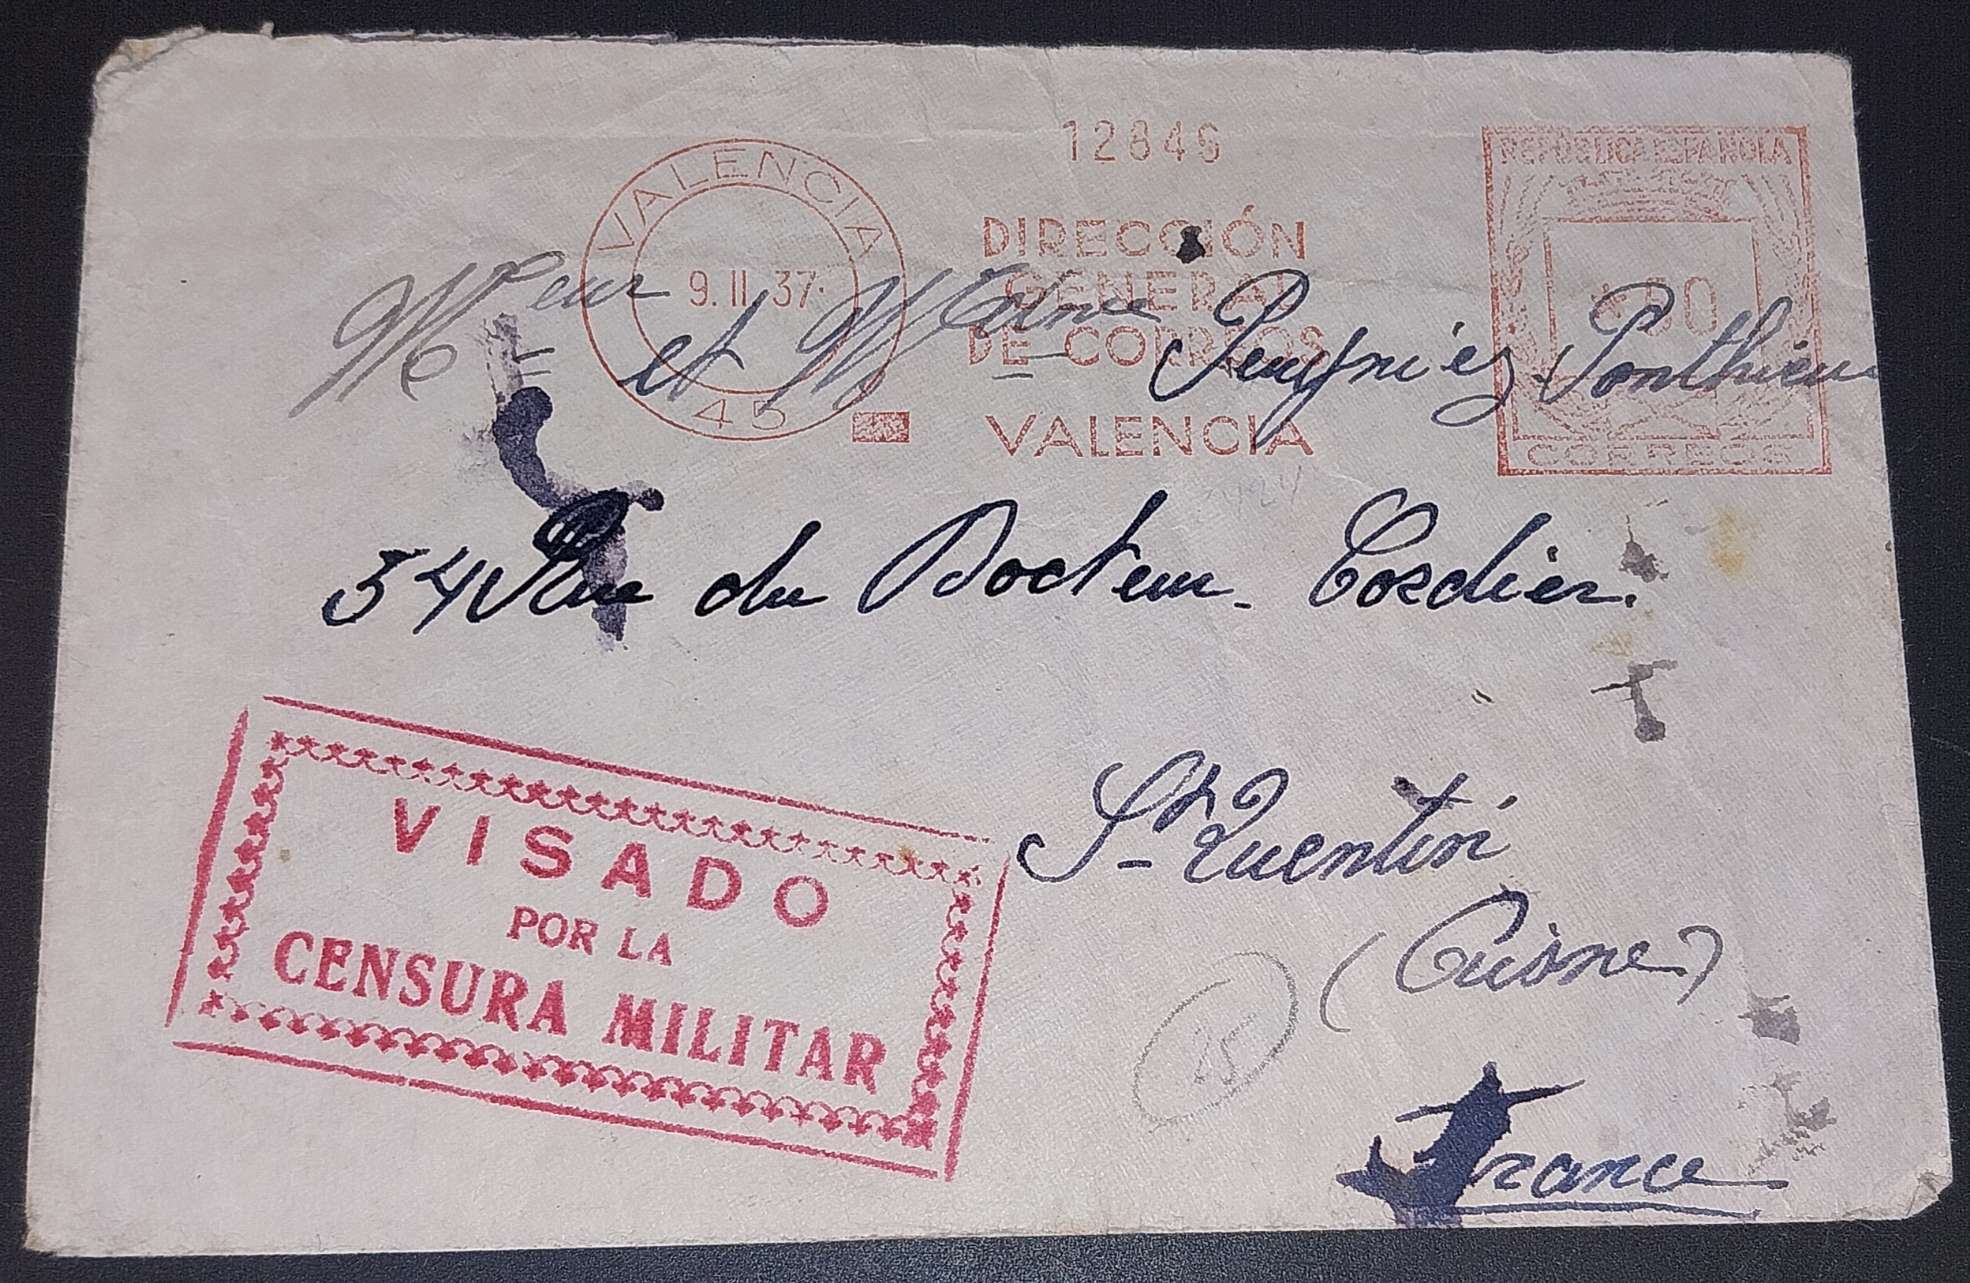 12846
VALENCIA
9.II.37.
45
DIRECCIÓN
GENERAL
DE CORREOS
VALENCIA
REPÚBLICA ESPAÑOLA
CORREOS
Mr eur et Madme Peugniez Ponthieu
54 Rue du Docteur Cordier.
St Quentin
(Aisne)
France
15
VISADO
POR LA
CENSURA MILITAR